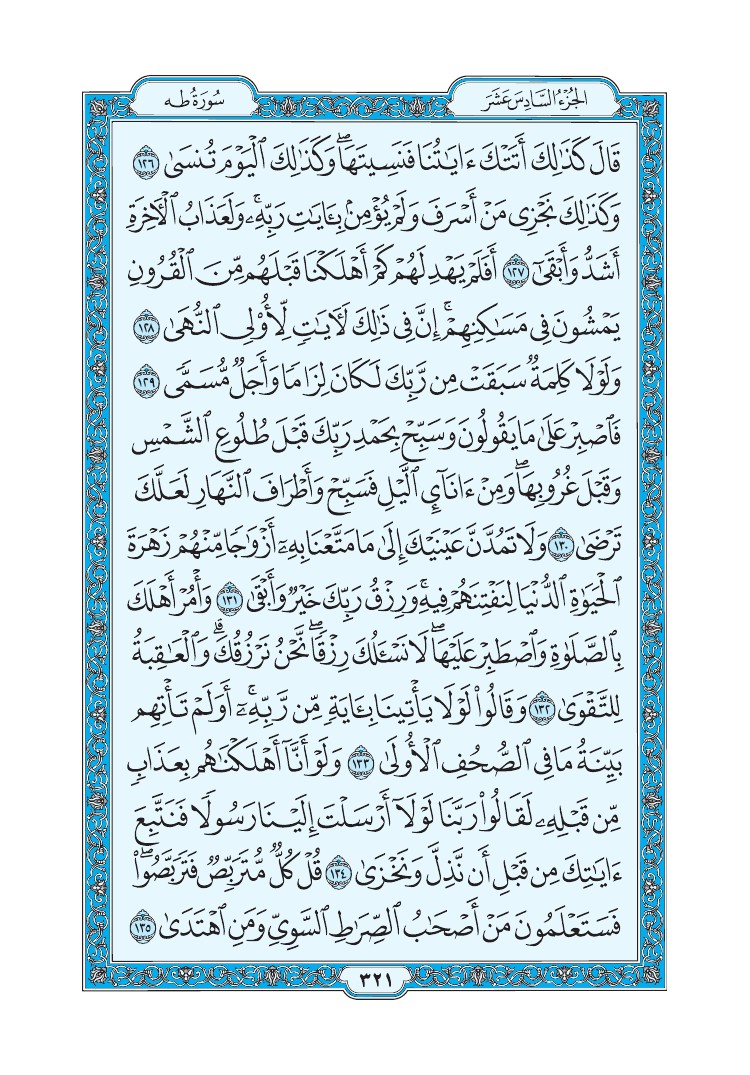 الجُزْءُ السَّادِسَ عَشَرَ
سُورَةُ طه
قَالَ كَذَٰلِكَ أَتَتْكَ ءَايَٰتُنَا فَنَسِيتَهَاۖ وَكَذَٰلِكَ ٱلْيَوْمَ تُنسَىٰ ١٢٦
وَكَذَٰلِكَ نَجْزِى مَنْ أَسْرَفَ وَلَمْ يُؤْمِنۢ بِـَٔايَٰتِ رَبِّهِۦۚ وَلَعَذَابُ ٱلْأَخِرَةِ
أَشَدُّ وَأَبْقَىٰٓ ١٢٧ أَفَلَمْ يَهْدِ لَهُمْ كَمْ أَهْلَكْنَا قَبْلَهُم مِّنَ ٱلْقُرُونِ
يَمْشُونَ فِى مَسَٰكِنِهِمْۚ إِنَّ فِى ذَٰلِكَ لَأَيَٰتٍ لِّأُو۟لِى ٱلنُّهَىٰ ١٢٨
وَلَوْلَا كَلِمَةٌ سَبَقَتْ مِن رَّبِّكَ لَكَانَ لِزَامًا وَأَجَلٌ مُّسَمًّى ١٢٩
فَٱصْبِرْ عَلَىٰ مَا يَقُولُونَ وَسَبِّحْ بِحَمْدِ رَبِّكَ قَبْلَ طُلُوعِ ٱلشَّمْسِ
وَقَبْلَ غُرُوبِهَاۖ وَمِنْ ءَانَآئِ ٱلَّيْلِ فَسَبِّحْ وَأَطْرَافَ ٱلنَّهَارِ لَعَلَّكَ
تَرْضَىٰ ١٣٠ وَلَا تَمُدَّنَّ عَيْنَيْكَ إِلَىٰ مَا مَتَّعْنَا بِهِۦٓ أَزْوَٰجًا مِّنْهُمْ زَهْرَةَ
ٱلْحَيَوٰةِ ٱلدُّنْيَا لِنَفْتِنَهُمْ فِيهِۚ وَرِزْقُ رَبِّكَ خَيْرٌ وَأَبْقَىٰ ١٣١ وَأْمُرْ أَهْلَكَ
بِٱلصَّلَوٰةِ وَٱصْطَبِرْ عَلَيْهَاۖ لَا نَسْـَٔلُكَ رِزْقًاۖ نَّحْنُ نَرْزُقُكَۗ وَٱلْعَٰقِبَةُ
لِلتَّقْوَىٰ ١٣٢ وَقَالُوا۟ لَوْلَا يَأْتِينَا بِـَٔايَةٍ مِّن رَّبِّهِۦٓۚ أَوَلَمْ تَأْتِهِم
بَيِّنَةُ مَا فِى ٱلصُّحُفِ ٱلْأُولَىٰ ١٣٣ وَلَوْ أَنَّآ أَهْلَكْنَٰهُم بِعَذَابٍ
مِّن قَبْلِهِۦ لَقَالُوا۟ رَبَّنَا لَوْلَآ أَرْسَلْتَ إِلَيْنَا رَسُولًا فَنَتَّبِعَ
ءَايَٰتِكَ مِن قَبْلِ أَن نَّذِلَّ وَنَخْزَىٰ ١٣٤ قُلْ كُلٌّ مُّتَرَبِّصٌ فَتَرَبَّصُوا۟ۖ
فَسَتَعْلَمُونَ مَنْ أَصْحَٰبُ ٱلصِّرَٰطِ ٱلسَّوِىِّ وَمَنِ ٱهْتَدَىٰ ١٣٥
٣٢١